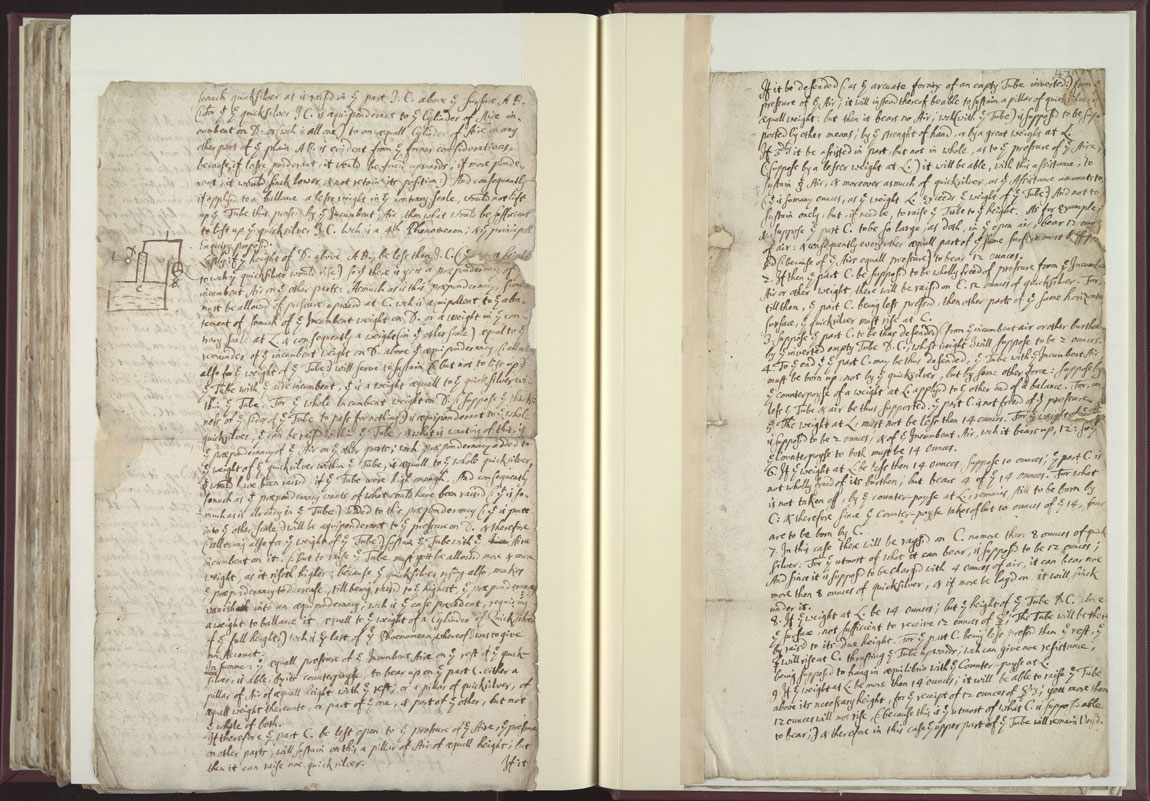 somuch quicksilver as is raised in ye part I.C. above ye surface A.B.
(For yt ye quicksilver I.C. is æquiponderant to ye Cylinder of Aire in-
cumbent on D. or (wch is all one) to an æquall Cylinder of Aire on any
other part of ye plain A.B. is evident from ye former considerations,
because, if lesse ponderant, it would be forced upwards; if more ponde-
rant, it would sinck lower, & not retain its position.) And consequently
if applyed to a ballance a lesse weight in ye contrary scale, would not lift
up ye Tube thus pressed by ye Incumbent Air, then what would be sufficient
to lift up ye quicksilver I.C. wch is a 4th Phenomenon, & ye principall
inquiry proposed.
If ye height of D. above A.B. be less then I.C. (
to wch ye quicksilver would rise) so yt there is yet a præponderancy of
incumbent Air on ye other parts: As much as is this præponderancy, so much
must be allowed of pressure upward at C. wch is æquipollent to ye aba-
tement of somuch of ye Incumbent weight on D. or a weight in ye con-
trary scale at L. & consequently a weight (in ye other scale) equal to ye
remainder of ye incumbent weight on D. above ye æquiponderancy (allowing
also for ye weight of ye Tube) will serve to sustain (but not to lift up)
ye Tube with ye aire incumbent, yt is a weight æquall to ye quicksilver wi-
thin ye Tube. For ye whole Incumbent weight on D. (I suppose ye thick-
nesse of ye sides of ye Tube to pass for nothing) is æquiponderant to ye whole
quicksilver, yt can be raised within ye Tube, & what is wanting of this, is
ye præponderancy of ye Air on ye other parts; wch præponderancy added to
ye weight of ye quicksilver within ye Tube, is æquall to ye whole quicksilver,
yt would have been raised, if ye Tube were high enough. And consequently
somuch as ye præponderancy wants of what could have been raised (yt is so
much as is already in ye Tube) added to the præponderancy (yt is putt
into ye other scale) will be æquiponderant to ye pressure on D. & therefore
(allowing also for ye weight of ye Tube) sustain ye Tube with ye Aire
incumbent on it; but to raise ye Tube must yett be allowed more & more
weight, as it riseth higher; because ye quicksilver rising also, makes
ye præponderancy to decrease, till being raised to ye highest, ye præponderancy
vanisheth into an æquiponderancy, wch is ye case precedent, requiring
a weight to ballance it æquall to ye weight of a Cylinder of Quicksilver
of ye full height) wch is ye last of ye Phænomena, whereof I was to give
an Account.
In summe: ye æquall pressure of ye Incumbent Aire on ye rest of ye quick-
silver, is able, by its counterpoise, to bear up on ye part C. either a
pillar of Air of æquall height with ye rest; or a pillar of quicksilver, of
æquall weight thereunto, or part of ye one, & part of ye other, but not
ye whole of both.
If therefore ye part C. be left open to ye pressure of ye Aire, ye pressure
on other parts, will sustain on this a pillar of Air of æquall height; but
then it can raise noe quicksilver.
If it
If it be defended (as ye accurate fornix of an empty Tube inverted) from
pressure of ye Air; it will instead thereof be able to sustain a pillar of quick
æquall weight: but then it bears no Air, wch (with ye Tube) is supposed to be sup-
ported by other means; by ye strenght of hand, or by a great weight at L.
If it be assisted in part, but not in whole, as to ye pressure of ye Aire,
(suppose by a lesser weight at L.) it will be able, with this assistance, to
sustain ye Air, & moreover as much of quicksilver, as ye Assistance amounts to
(yt is so many ounces, as ye weight L. exceed ye weight of ye Tube) And not to
sustain only: but, if need be, to raise ye Tube to yt height. As for example;
1. Suppose ye part C. to be so large, as doth, in ye open air, bear 12 ounces
of air: & consequently every other æquall part of ye same surface must be supp
sed (because of ye Airs equall pressure) to bear 12 ounces.
2. If then ye part C. be supposed to be wholly freed of pressure from ye Incumbent
Air or other weight, there will be raised on C. 12 ounces of quicksilver. For,
till then, ye part C. being less pressed, then other parts of ye same horizontal
surface, ye quicksilver must rise at C.
3. Suppose ye part C. to be thus defended (from ye incumbent air or other burthen
by ye inverted empty Tube D.C; whose weight I will suppose to be 2 ounces.
4. To ye end yt ye part C. may be thus defended, ye Tube with ye Incumbent Air
must be born up, not by ye quicksilver, but by some other force: suppose by
ye counterpoyse of a weight at L. applyed to ye other end of a balance. For, un-
lesse ye Tube & air be thus supported, ye part C. is not freed of ye pressure.
5. The weight at L. must not be less than 14 ounces. For ye weight of ye Tube
is supposed to be 2 ounces, & of ye Incumbent Air, wch it bears up, 12: so yt
ye Counterpoyse to both must be 14 ounces.
6. If ye weight at L. be less then 14 ounces, suppose 10 ounces; ye part C. is
not wholly freed of its burthen, but bears 4 of ye 14 ounces. For what
is not taken off, by ye counter-poyse at L, remains still to be born by
C: & therefore since ye Counter-poyse takes of but 10 ounces of ye 14, four
are to be born by C.
7. In this case there will be raised on C. no more than 8 ounces of quick
silver. For ye utmost of what it can bear, is supposed to be 12 ounces;
And since it is supposed to be charged with 4 ounces of air, it can bear noe
more than 8 ounces of quicksilver, & if more be layd on, it will sinck
under it.
8. If ye weight at L. be 14 ounces; but ye height of ye Tube D.C. above
ye surface, not sufficient to receive 12 ounces of The Tube will be there
by raised to its due height. For ye part C. being less pressed then ye rest, ye
will rise at C. thrusting ye Tube upwards; wch can give noe resistance,
being supposed to hang in æquilibrio with ye Counter-poyse at L.
9. If ye weight at L. be more than 14 ounces; it will be able to raise ye Tube
above its necessary height, for ye receipt of 12 ounces of yett more then
12 ounces will not rise, (because this is ye utmost of what C. is supposed able
to bear;) & therefore in this case ye upper part of ye Tube will remain Voyd.